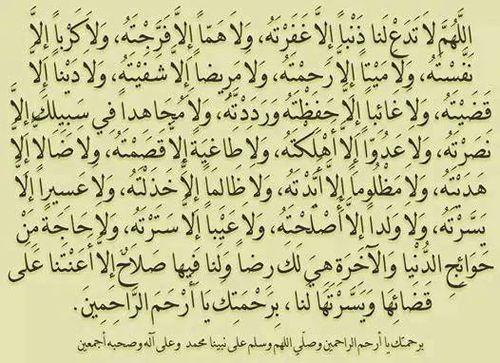 اللَّهُمَّ لاَ تَدَعْ لَنا ذَنْباً إِلاَّ غَفَرْتَهُ، وَلاَ هَمّاً إِلاَّ فَرَّجْتَهُ، وَلاَ كَرْباً إِلاَّ
نَفَّسْتَهُ، وَلا مَيْتاً إِلاَّ رَحْمْتَهُ، وَلا مَرِيضاً إِلاَّ شَفَيْتَهُ، وَلا دَيْناً إِلاَّ
قَضَيْتَهُ، وَلا غائباً إِلاَّ حَفِظْتَهُ وَرَدِدْتَهُ، وَلا مُجاهداً في سَبِيلِكَ إِلاَّ
نَصَرْتَهُ، وَلا عَدُوّاً إِلاَّ أَهْلَكْتَهُ، وَلا طاغِيَةً إِلاَّ قَصَمْتَهُ، وَلا ضَالاً إِلاَّ
هَدَيْتَهُ، وَلا مَظْلُوماً إِلاَّ أَيَّدْتَهُ، وَلا ظالِماً إِلاَّ خَذَلْتَهُ، وَلا عَسِيراً إِلاَّ
يَسَّرْتَهُ، وَلا ولداً إِلاَّ أَصْلَحْتَهُ، وَلا عَيْباً إِلاَّ سَتَرْتَهُ، وَلا حَاجَةً مِنْ
حَوائِجِ الدُّنْيا وَالآخَرَةِ هِيَ لَكَ رِضاً وَلَنا فِيها صلاحٌ إِلاَّ أَعَنْتَنا عَلَى
قَضائها وَيَسَّرْتَهَا لَنا، بِرَحْمَتِكَ يا أَرْحَمَ الرَّاحِمِينَ.
برحمتك يا أرحم الراحمين وصلّي اللهم وسلم على نبينا محمد وعلى آله وصحبه أجمعين